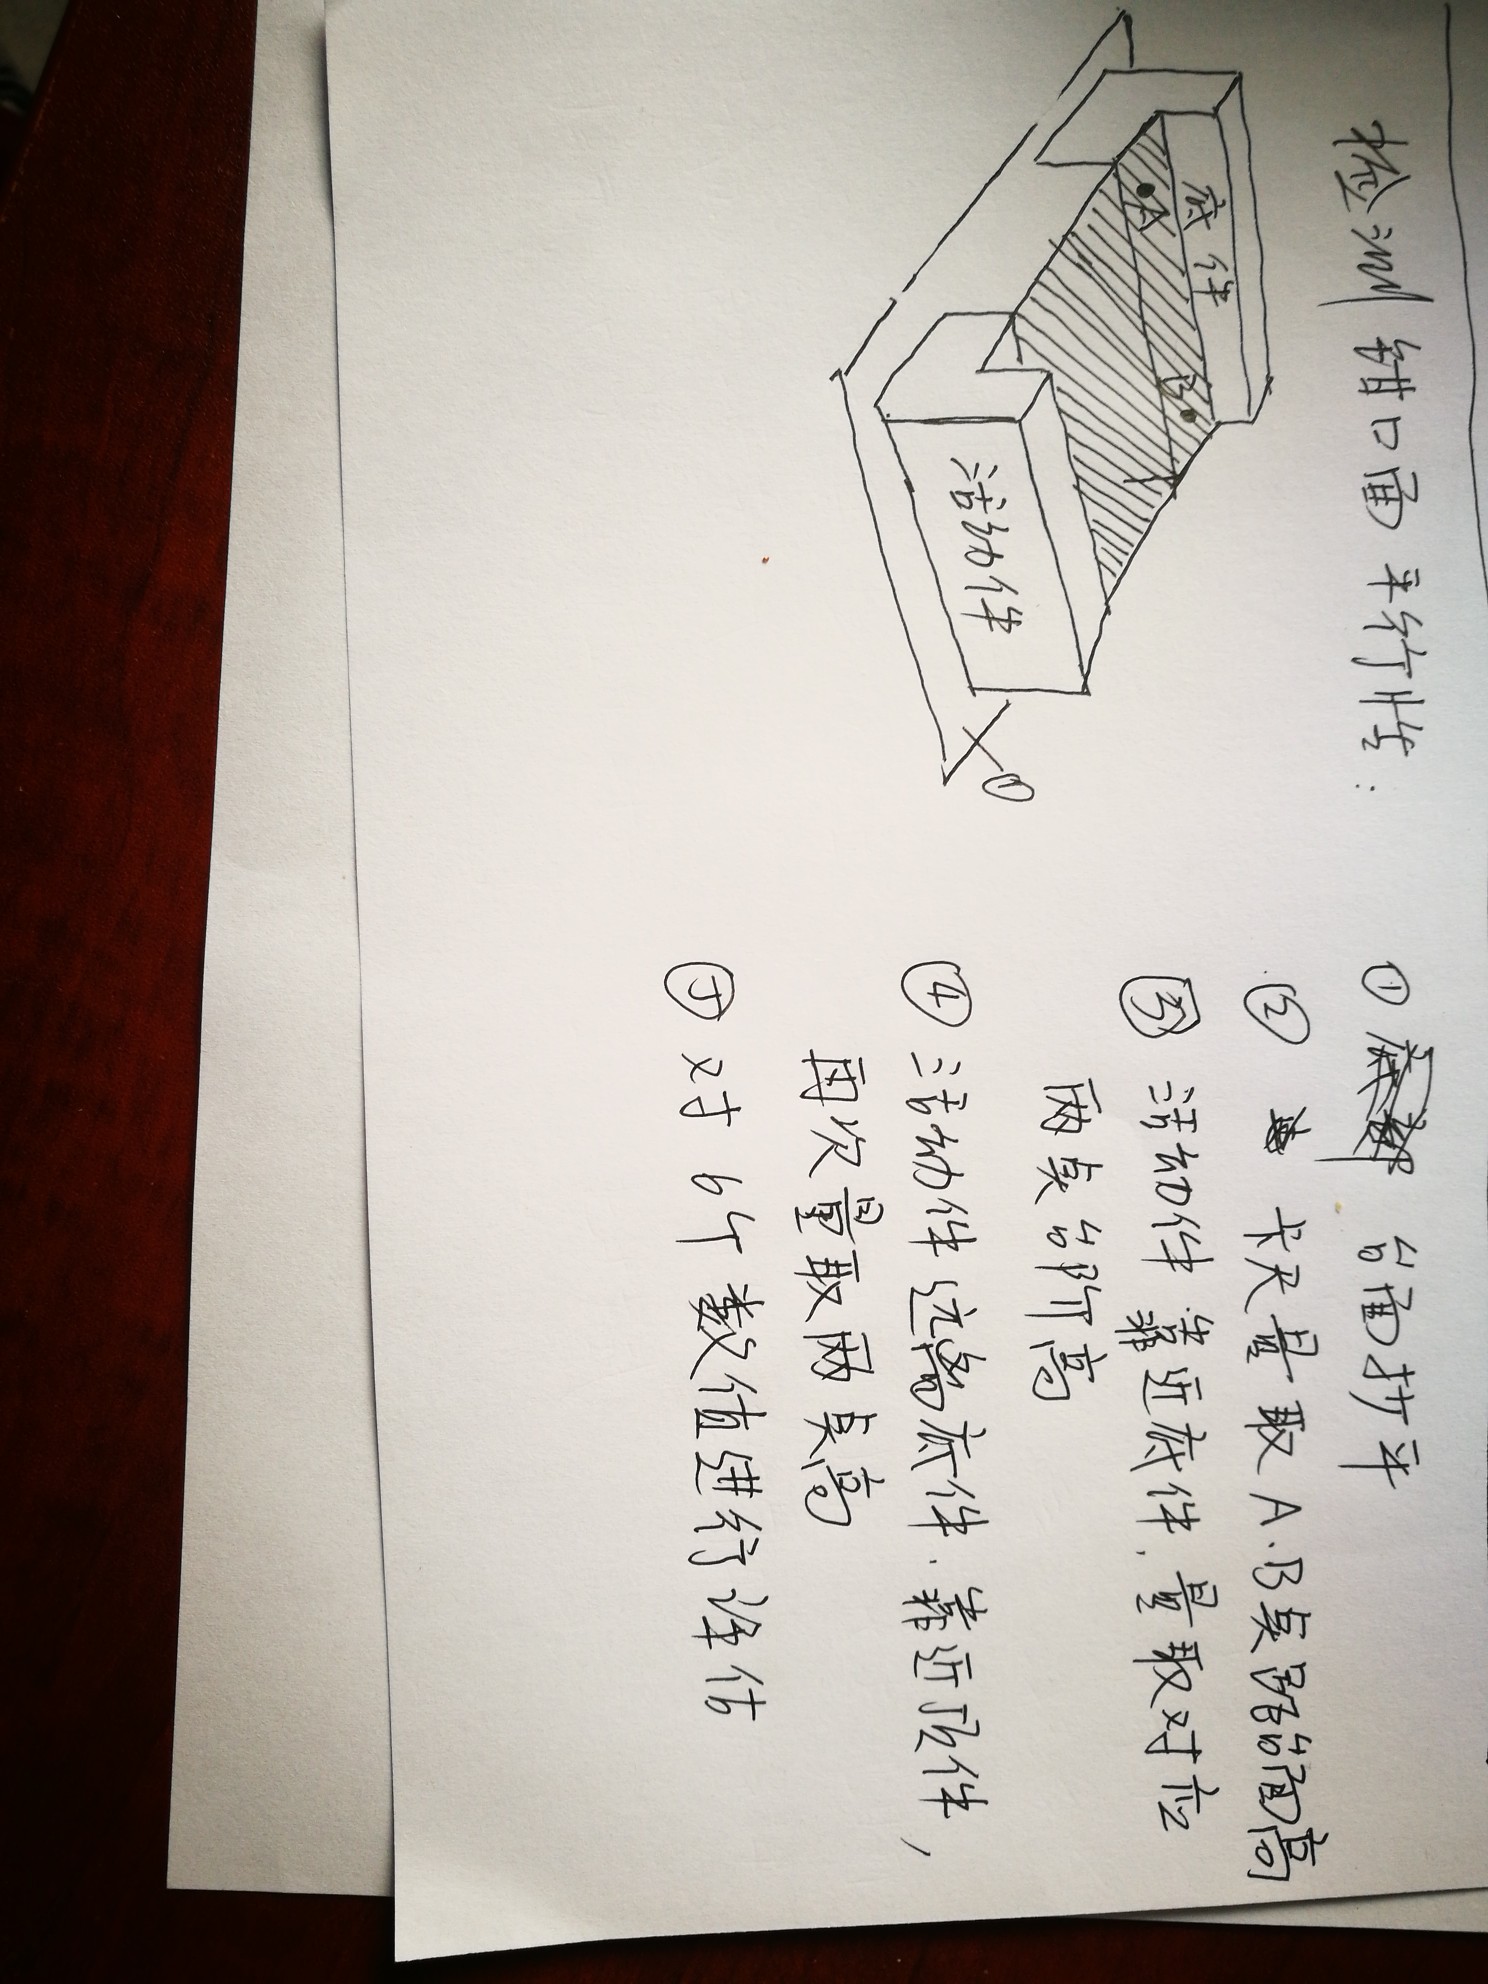 检测钳口面平行性：
底件
A
B
活动件
①
① 台面打平
② 卡尺量取A.B点距台面高
③ 活动件靠近底件，量取对应
两点台阶高
④ 活动件远离底件．靠近顶件，
再次量取两点高
⑤ 对6个数值进行评估